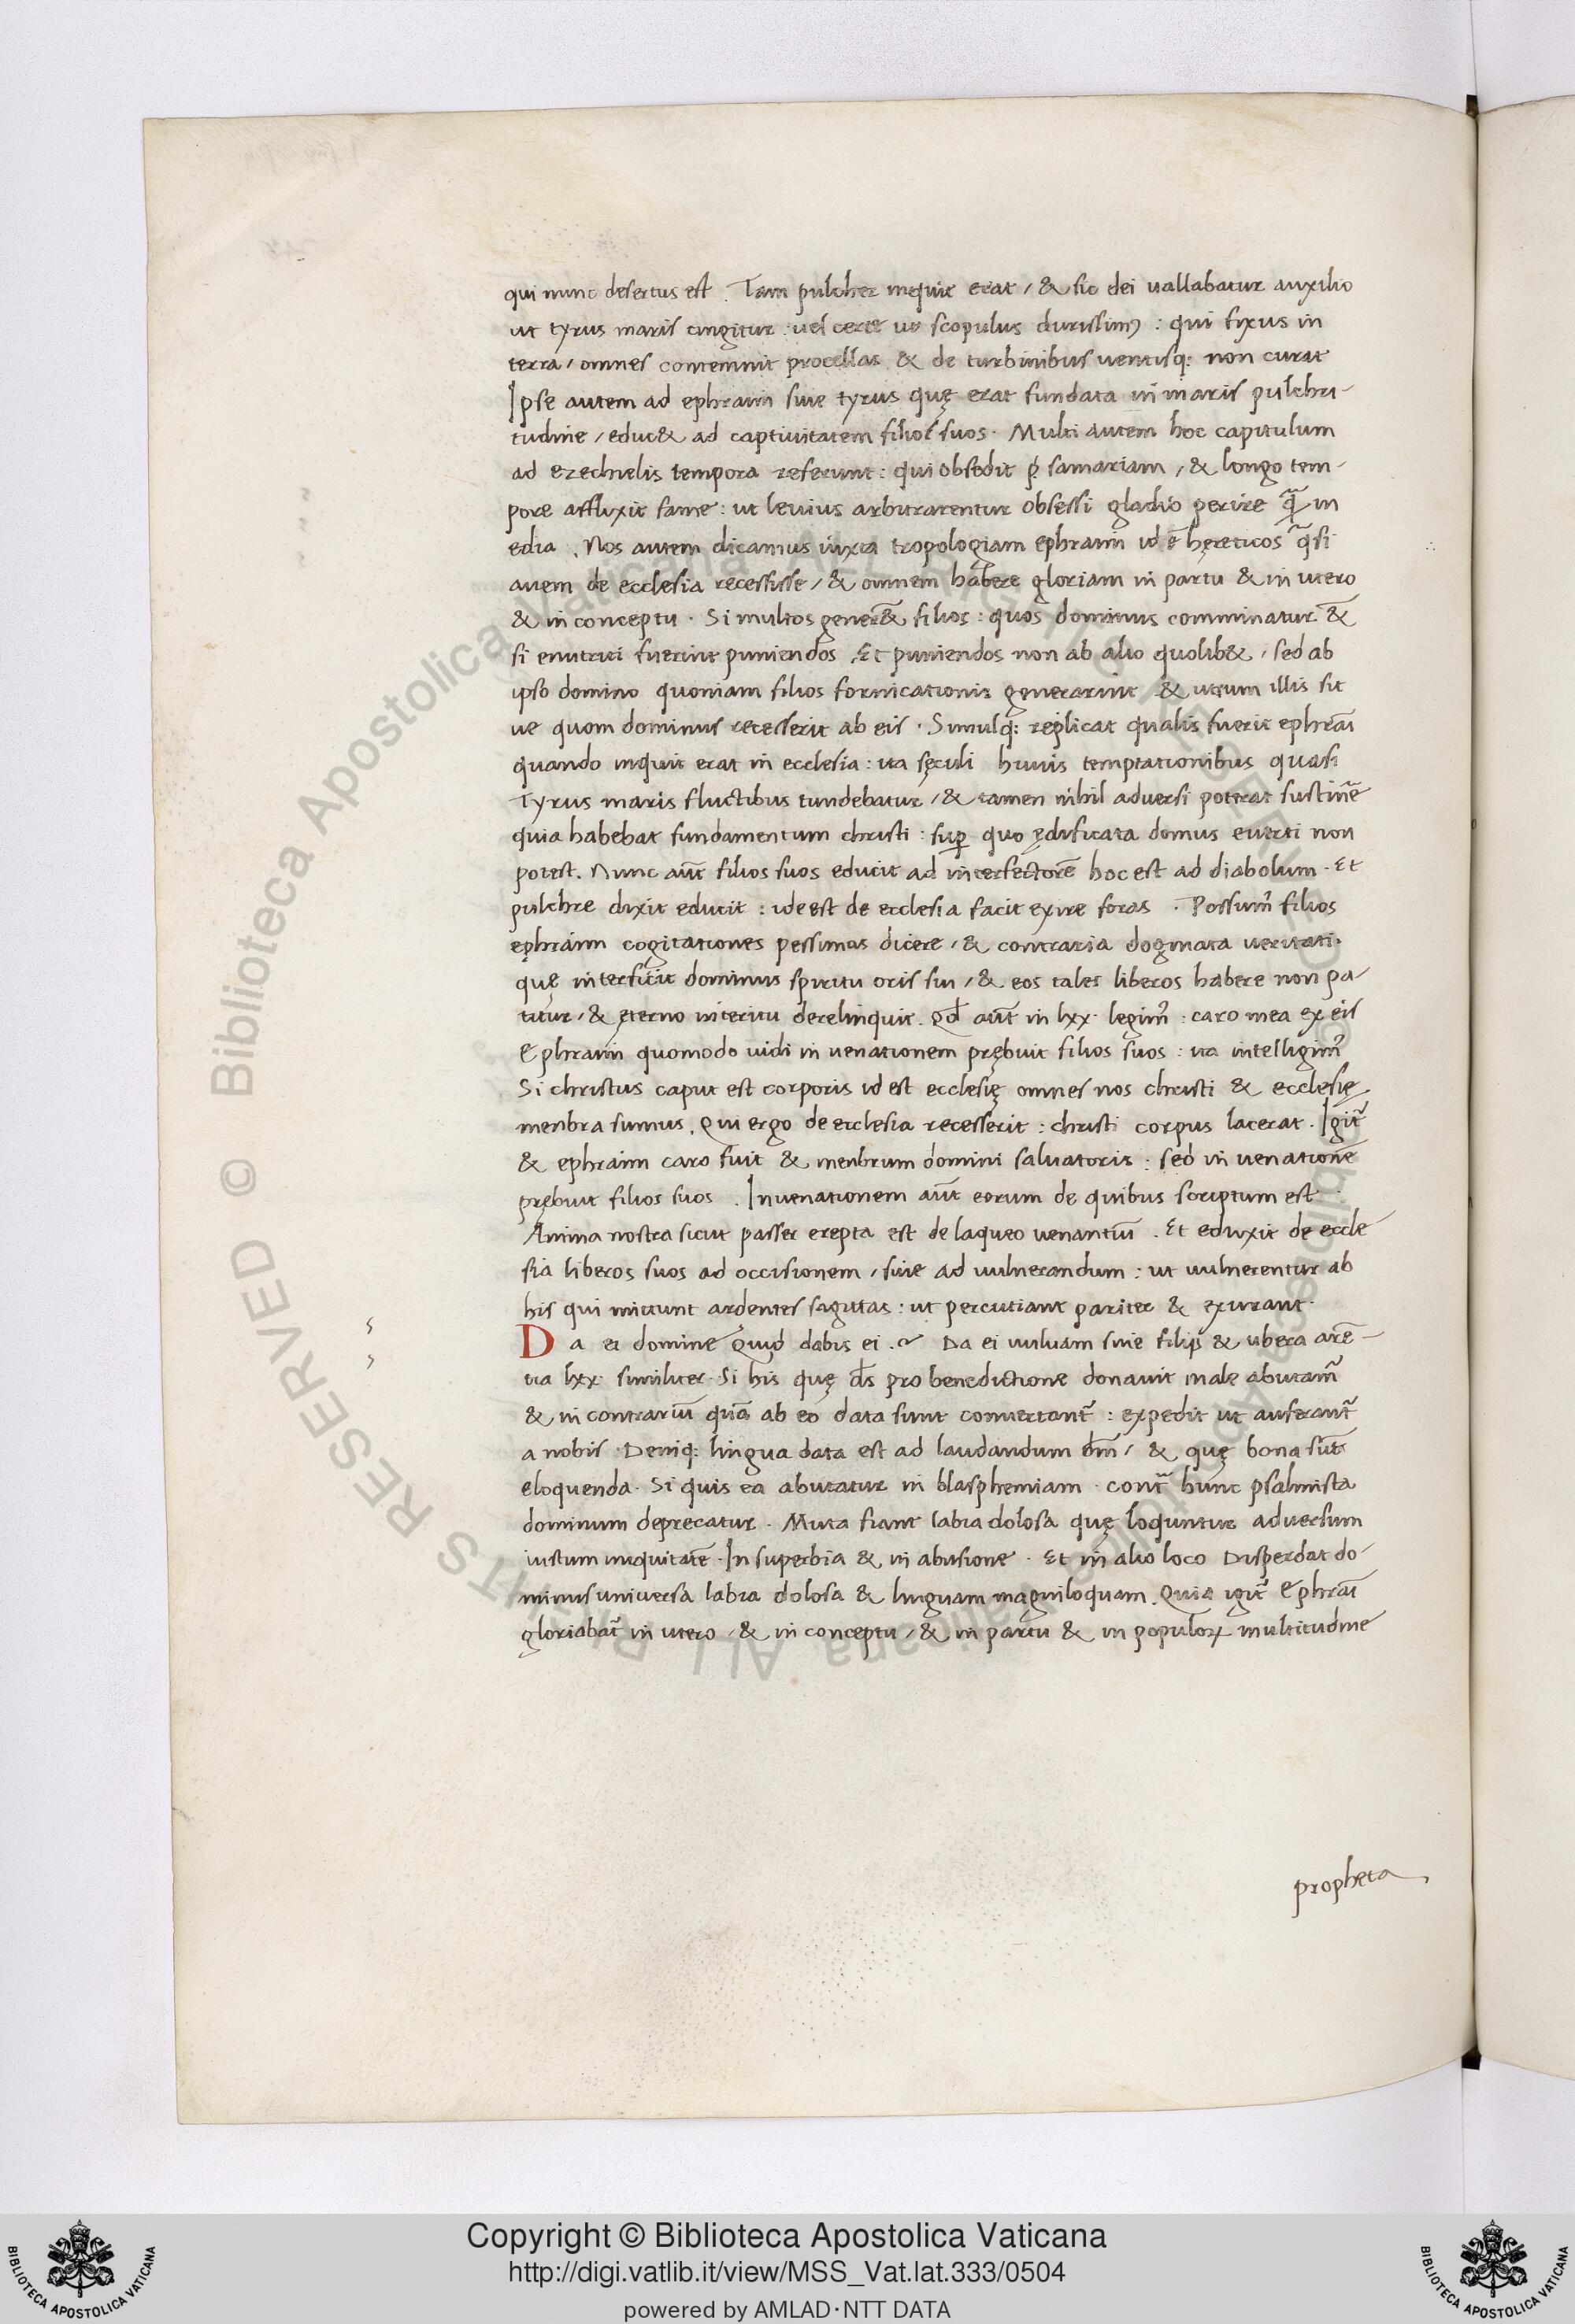 qui nunc desertus est. Tam pulcher inquit erat / & sic dei uallabatur auxilio
ut tyrus maris cingitur : uel certe ut scopulus durissimꝰ : qui fixus in
terra / omnes contemnit procellas & de turbinibus uentisq: non curat
Ipse autem ad ephraim siue tyrus quę erat fundata in maris pulchri-
tudine / educ& ad captiuitatem filios suos. Multi autem hoc capitulum
ad ezechielis tempora referunt : qui obsedit samariam / & longo tem-
pore afflixit fame : ut leuius arbitrarentur obsessi gladio perire q̃ in
edia. Nos autem dicamus iuxta tropologiam ephraim id ē hęreticos q̃si
auem de ecclesia recessisse / & omnem habere gloriam in partu & in utero
& in conceptu. Si multos gener& filios : quos dominus comminatur &
si enutriti fuerint puniendos. Et puniendos non ab alio quolib& / sed ab
ipso domino quoniam filios fornicationis generarint & utrum illis sit
ue quom dominus recesserit ab eis. Simulq: replicat qualis fuerit ephraī
quando inquit erat in ecclesia : ita sęculi huius temptationibus quasi
Tyrus maris fluctibus tundebatur / & tamen nihil aduersi poterat sustinē
quia habebat fundamentum christi : sup̱ quo ędificata domus euerti non
potest. Nunc aūt filios suos educit ad interfectorē hoc est ad diabolum. Et
pulchre dixit educit : id est de ecclesia facit exire foras. Possum̃ filios
ephraim cogitationes pessimas dicere / & contraria dogmata ueritati.
quę interficit dominus spiritu oris sui / & eos tales liberos habere non pa-
titur / & ęterno interitu derelinquit. Qd aūt in lxx. legim̃ : caro mea ex eis
Ephraim quomodo uidi in uenationem prębuit filios suos : ita intelligim̃
Si christus caput est corporis id est ecclesię omnes nos christi & ecclesię
menbra sumus. Qui ergo de ecclesia recesserit : christi corpus lacerat. Igit̃
& ephraim caro fuit & menbrum domini saluatoris : sed in uenationē
prębuit filios suos. In uenationem aūt eorum de quibus scriptum est.
Anima nostra sicut passer erepta est de laqueo uenantiū. Et eduxit de eccle
sia liberos suos ad occisionem / siue ad uulnerandum : ut uulnerentur ab
his qui mittunt ardentes sagittas : ut percutiant pariter & exurant.
Da ei domine Quid dabis ei. Da ei uuluam siue filijs & ubera arē-
tia lxx. similiter. Si his quę ds̄ pro benedictione donauit male abutam̃
& in contrariū quā ab eo data sunt conuertant̃ : expedit ut auferant̃
a nobis. Deniq: lingua data est ad laudandum dm̄ / & quę bona sūt
eloquenda. Si quis ea abutatur in blasphemiam. cont̃ hunc psalmista
dominum deprecatur. Muta fiant labia dolosa quę loquntur aduersum
iustum iniquitatē. In superbia & in abusione. Et in alio loco Disperdat do-
minus uniuersa labia dolosa & linguam magniloquam. Quia igit̃ Ephraī
gloriabat̃ in utero / & in conceptu / & in partu & in populoꝝ multitudine
propheta
Copyright © Biblioteca Apostolica Vaticana
http://digi.vatlib.it/view/MSS_Vat.lat.333/0504
powered by AMLAD·NTT DATA